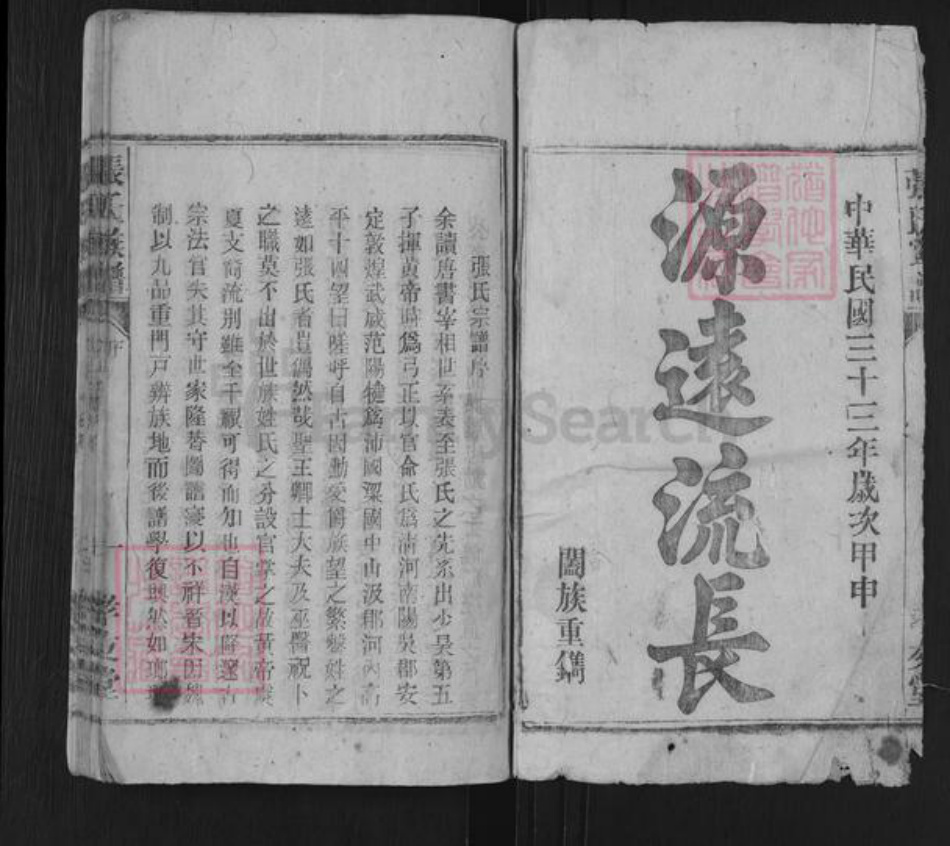 中華民國三十三年歲次甲申
源遠流長
闔族重鐫
張氏宗譜序
余讀唐書宰相世系表至張氏之先系出少吴第五
子揮黄帝時爲弓正以官命氏爲清河南陽吳郡安
定敦煌武威范陽犍爲沛國梁國中山汲郡河內高
平十四望曰嗟呼自古因勳受爵族望之繁盤姓之
遠如張氏者豈偶然哉聖王卿士大夫及巫醫祝卜
之職莫不由於世族姓氏之分設官掌之故黄帝
夏文裔流別雖全千禩可得而知也自漢以降
宗法官失其守世家隆替闕譜寖以不祥晋宋因魏
制以九品重門戸辨族地而後譜學復興然如
張氏族譜
序